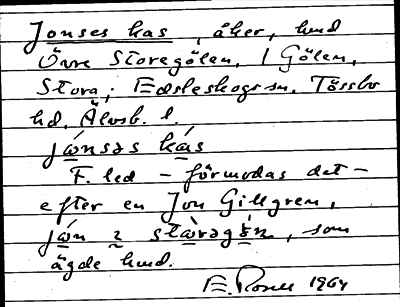 Jonses kas, åker, hmd
Övre Storegölen, / Gölen,
Stora; Edsleskogs sn. Tössbo
hd. Älvsb. l.
jẃnsəs kás
F. led - förmodas det -
efter en Jon Gillgren,
som
ägde hmd.
E. Rosell 1964